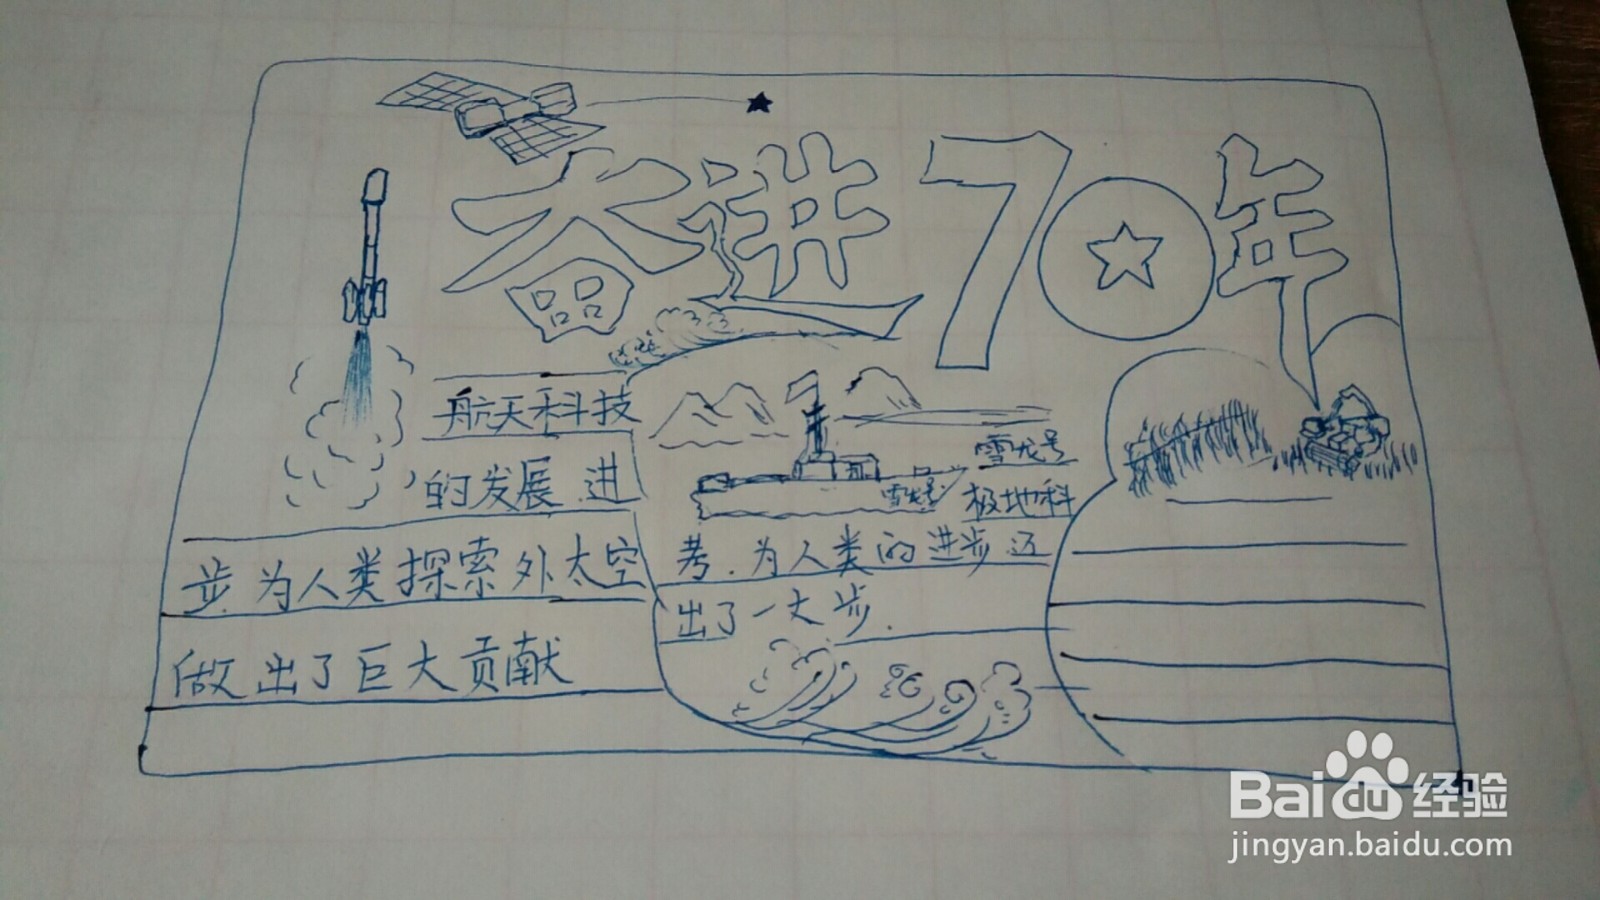 奋进70年
航天科技
的发展.进
步.为人类探索外太空
做出了巨大贡献
雪龙号
雪龙号
极地科
考.为人类的进步迈
出了一大步.
Baidu经验
jingyan.baidu.com